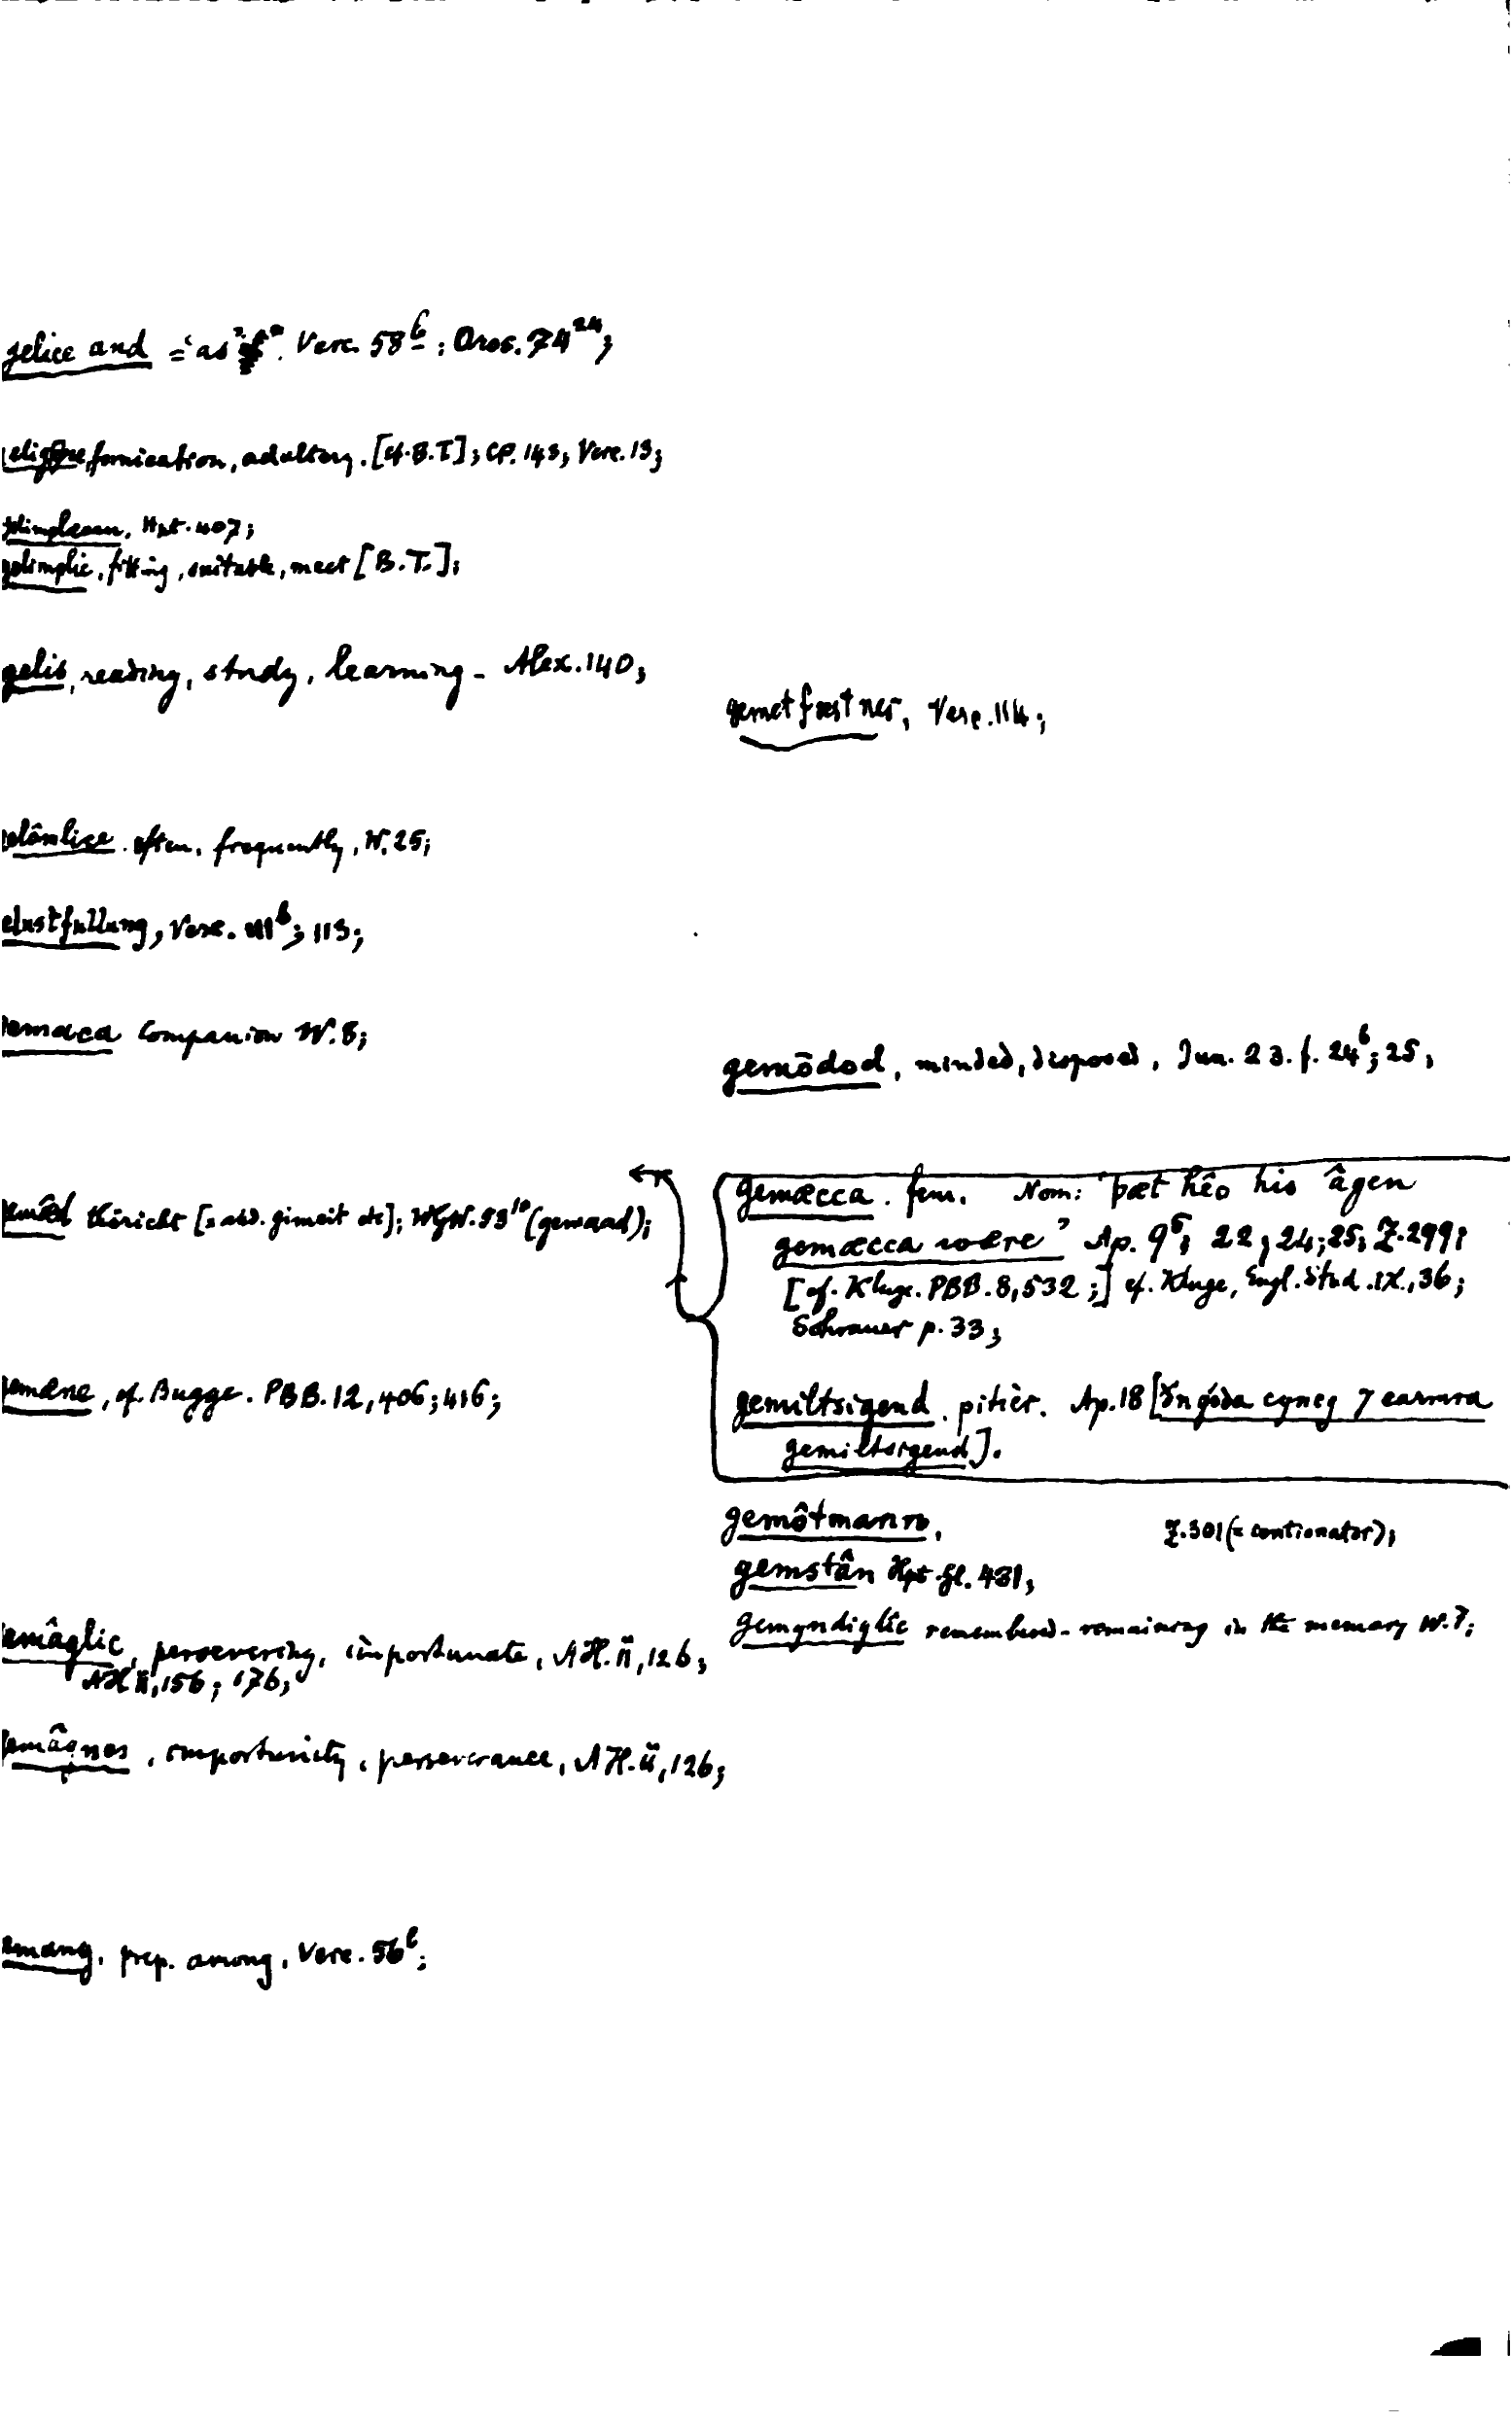 gelice and = 'as'. Verc. 58b; Oros. 74²⁴;
fornication, adultery. [cf. B.T]; CP. 143; Verc. 13;
Hpt. 407;
gelimplic, fitting, suitable, meet [B.T.];
gelis, reading, study, learning - Alex. 140;
elômlice. often, frequently, W. 25;
elustfullung, Verc. 111b; 113;
emaca companion W. 8;
emâd thöricht [= ahd. gimeit etc]; WgW. 93¹⁰ (gemaad);
emæne, cf. Bugge. PBB. 12, 406; 416;
emâglic, persevering, importunate, ÆH. ii, 126;
ÆH ii, 156; 176;
emâgnes, importunity, perseverance, ÆH. ii, 126;
emang, prep. among, Verc. 56b;
gemetfæstnes, Verc. 114;
gemôdod, minded, disposed, Jun. 23. f. 24b; 25;
gemæcca. fem. Nom: 'þæt hêo his âgen
gemæcca wære' Ap. 9⁵; 22; 24; 25; Z. 299;
[cf. Kluge. PBB. 8, 532;] cf. Kluge, Engl. Stud. IX., 36;
Schrauer p. 33;
gemiltsigend. pitier. Ap. 18 [ gôda cyneg ⁊ earmra
gemiltsigend].
gemôtmann, Z. 301 (= contionator);
gemstân Hpt. gl. 431;
gemyndiglic remembered - remaining in the memory W. 7;